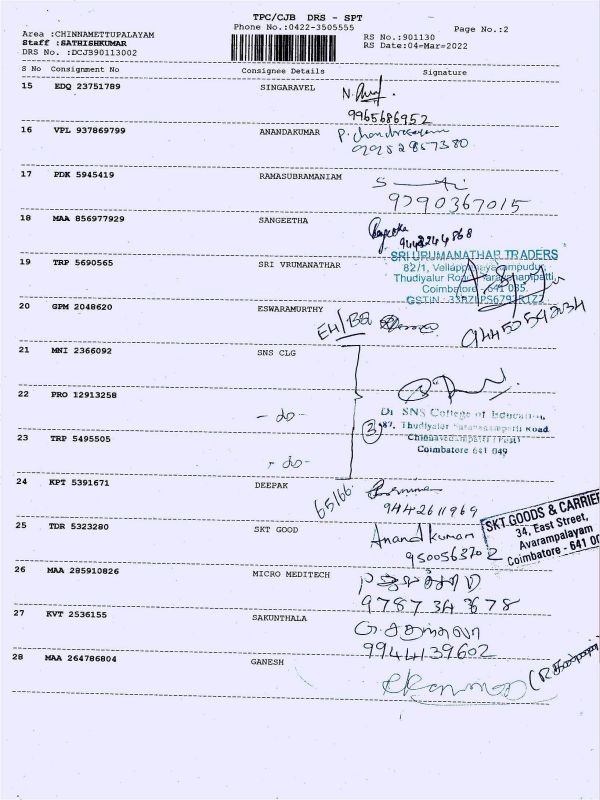 TPC/CJB DRS - SPT
Phone No.:0422-3505555
Page No.:2
Area :CHINNAMETTUPALAYAM
Staff :SATHISHKUMAR
DRS No. :DCJB90113002
RS No.:901130
RS Date:04-Mar-2022
S No Consignment No Consignee Details Signature
15 EDQ 23751789 SINGARAVEL
9965686952
16 VPL 937869799 ANANDKUMAR
17 PDK 5945419 RAMASUBRAMANIAM
9790367015
18 MAA 856977929 SANGEETHA
19 TRP 5690565 SRI VRUMANATHAR
SRI URUMANATHAR TRADERS
82/1,
Thudiyalur
Coimbatore - 641 035.
20 GPM 2048620 ESWARAMURTHY
21 MNI 2366092 SNS CLG
22 PRO 12913258 - do -
SNS College of
Thudiyalur Saravanampatti Road
Coimbatore 641 049
23 TRP 5495505 - do -
24 KPT 5391671 DEEPAK
65166
9442611969
25 TDR 5323280 SKT GOOD
Anand kumar
9500563702
SKT GOODS & CARRIER
34, East Street,
Avarampalayam
Coimbatore - 641
26 MAA 285910826 MICRO MEDITECH
27 KVT 2536155 SAKUNTHALA
9944139602
28 MAA 264786804 GANESH